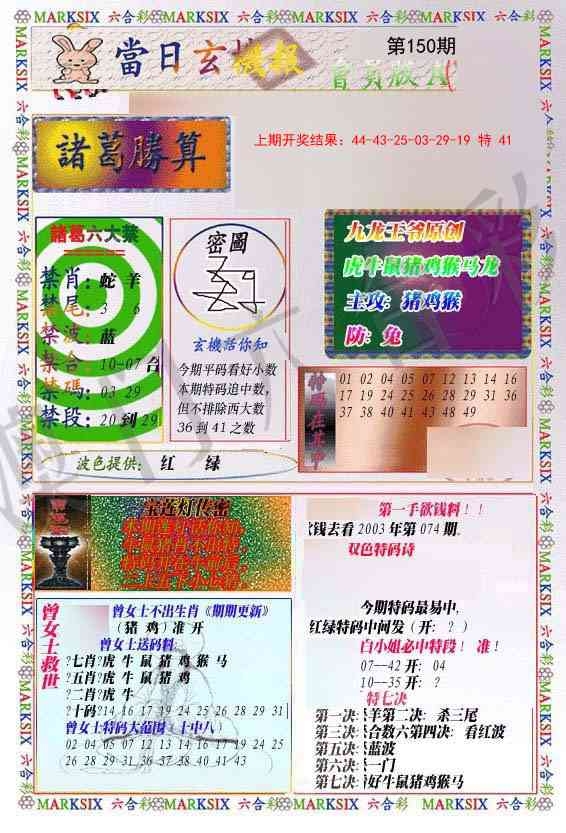 MARKSIX 六合彩 MARKSIX 六合彩 MARKSIX 六合彩 MARKSIX 六合彩
當日玄機報
第150期
會員版A
諸葛勝算
上期开奖结果：44-43-25-03-29-19 特 41
諸葛六大禁
禁肖：蛇 羊
禁尾：3 6
禁波：蓝
禁合：10-07合
禁碼：03 29
禁段：20到29
密圖
玄機活你知
今期平码看好小数
本期特码追中数，
但不排除西大数
36到41之数
九龙王爷原创
虎牛鼠猪鸡猴马龙
主攻：猪鸡猴
防：兔
特码在其中
01 02 04 05 07 12 13 14 16
17 19 24 25 26 28 29 31 36
37 38 40 41 43 48 49
波色提供： 红 绿
宝莲灯传密
曾女士救世
曾女士不出生肖《期期更新》
（猪 鸡）准 开
曾女士送码料
?七肖?虎 牛 鼠 猪 鸡 猴 马
?五肖?虎 牛 鼠 猪 鸡
?二肖?虎 牛
?十码?14 16 17 19 24 25 26 28 29 31
曾女士特码大范围（十中八）
02 04 05 07 12 13 14 16 17 19 24 25
26 28 29 31 36 37 38 40 41 43
第一手欲钱料！！
欲钱去看2003年第074期。
双色特码诗
今期特码最易中，
红绿特码中间发（开：？）
白小姐必中特段！ 准！
07--42 开：04
10--35 开：？
特七决
第一决：杀羊第二决：杀三尾
第三决：杀合数六第四决：看红波
第五决：杀蓝波
第六决：杀一门
第七决：看好牛鼠猪鸡猴马
MARKSIX 六合彩 MARKSIX 六合彩 MARKSIX 六合彩 MARKSIX 六合彩